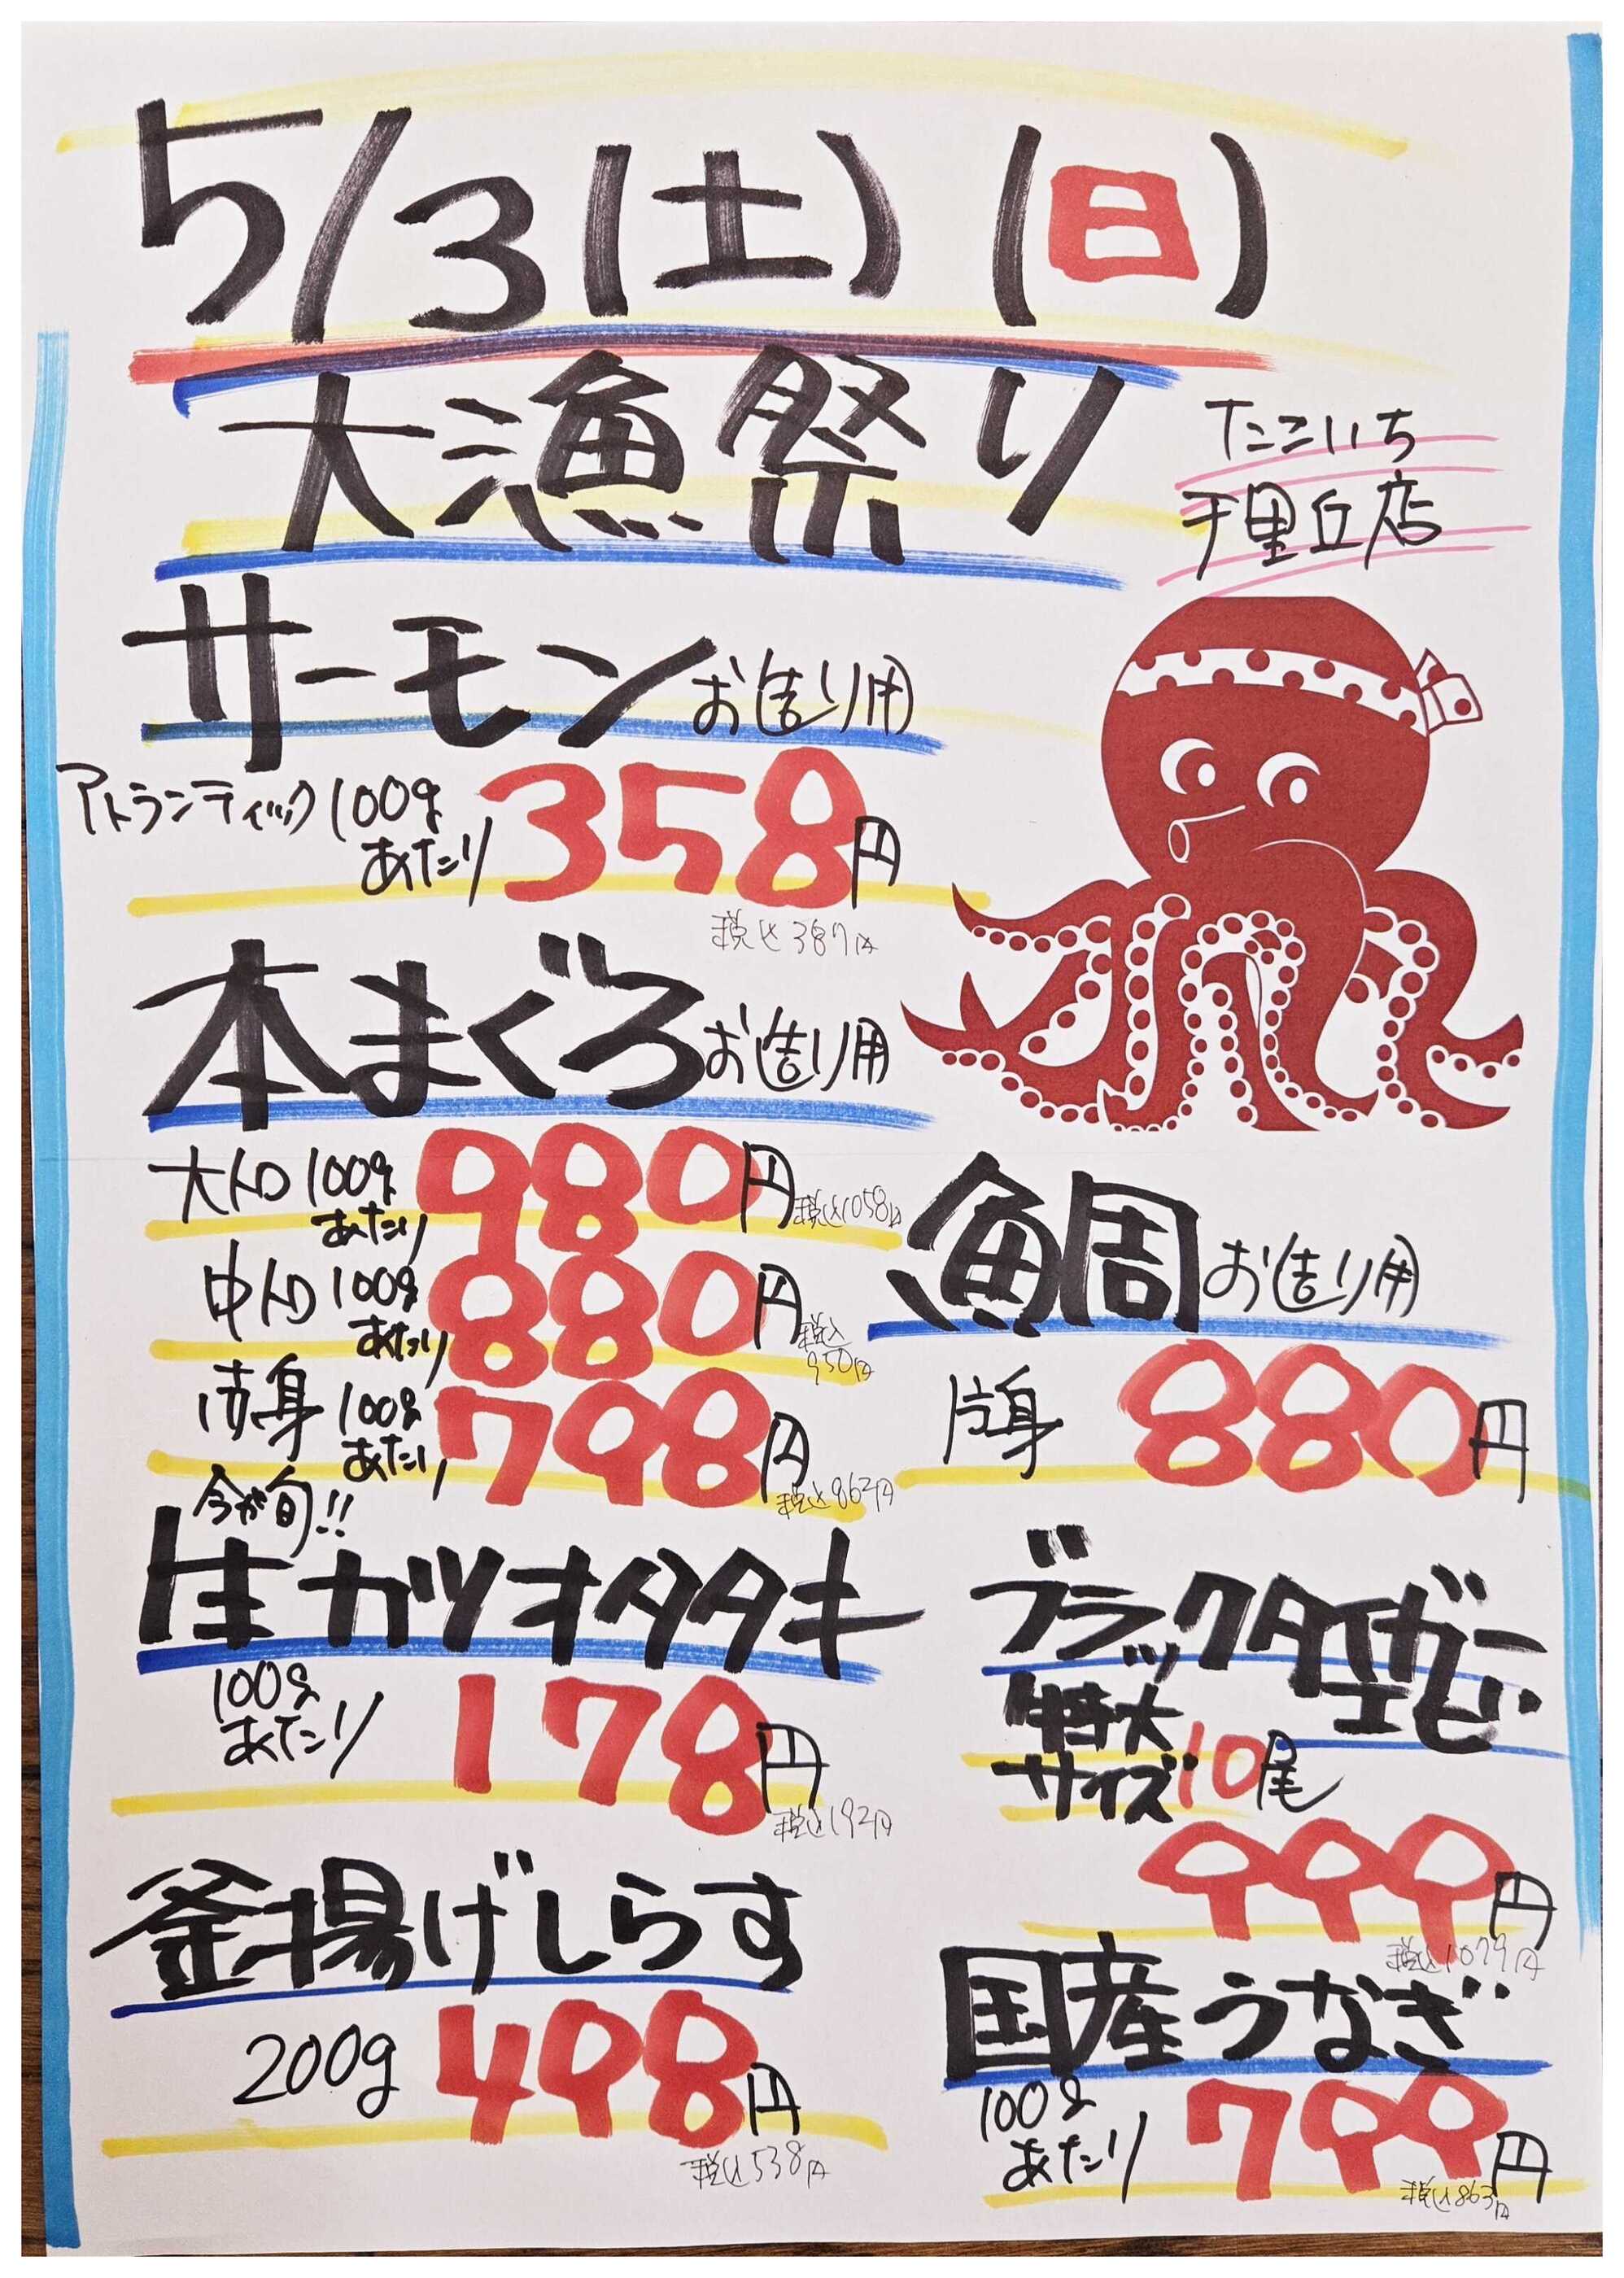 5/3(土)(日)
大漁祭り
たこいち
千里丘店
サーモンお造り用
アトランティック100gあたり358円
税込387円
本まぐろお造り用
大トロ100gあたり980円
税込1058円
中トロ100gあたり880円
税込950円
赤身100gあたり798円
税込862円
鯛お造り用
片身880円
今が旬!!
生ガツオタタキ
100gあたり178円
税込192円
ブラックタイガーエビ
特大サイズ10尾
999円
税込1079円
釜揚げしらす
200g498円
税込538円
国産うなぎ
100gあたり799円
税込863円